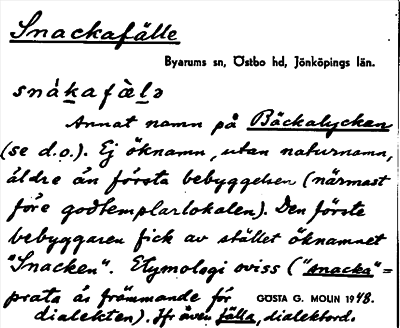 Snackafälle
Byarums sn, Östbo hd, Jönköpings län.
snákafæ̀lə
Annat namn på Bäckalyckan
(se d.o.). Ej öknamn, utan naturnamn,
äldre än första bebyggelsen (närmast
före godtemplarlokalen). Den förste
bebyggaren fick av stället öknamnet
"Snacken". Etymologi oviss ("snacka"=
prata är främmande för GÖSTA G. MOLIN 1948.
dialekten). Jfr även fälla, dialektord.